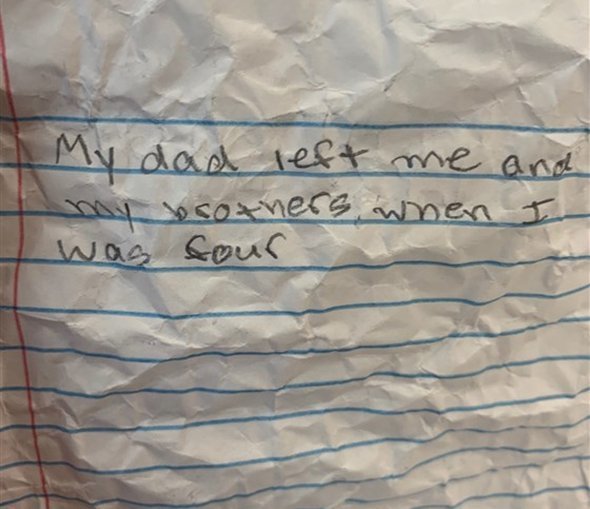 My dad left me and
my brothers, when I
was four